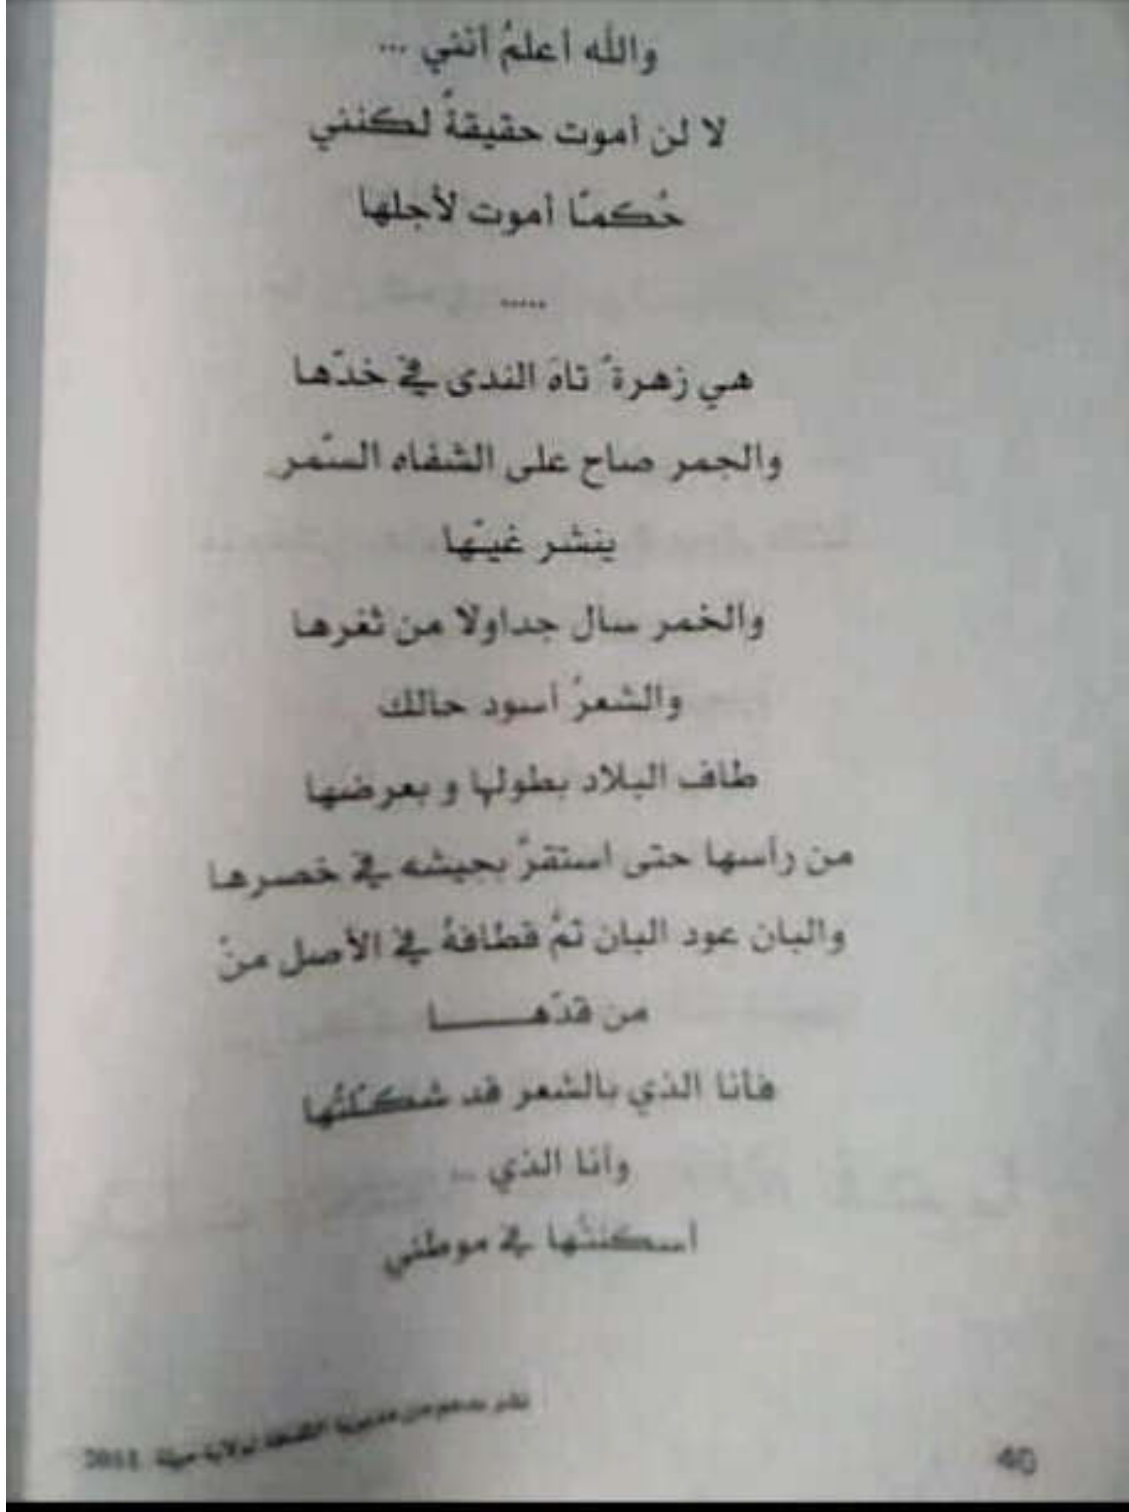 والله أعلمُ أنني ...
لا لن أموت حقيقةً لكنني
حُكمًا أموت لأجلها
.....
هي زهرةٌ تاهَ الندى في خدّها
والجمر صاح على الشفاه السّمر
ينشر غيّها
والخمر سال جداولا من ثغرها
والشعرُ أسود حالك
طاف البلاد بطولها و بعرضها
من رأسها حتى استقرَّ بجيشه في خصرها
والبان عود البان تمَّ قطافهُ في الأصل منْ
من قدّهـــــا
فأنا الذي بالشعر قد شكّلتُها
وأنا الذي ..
أسكنتُها في موطني
نشر بدعم من مديرية الثقافة لولاية ميلة 2011
40